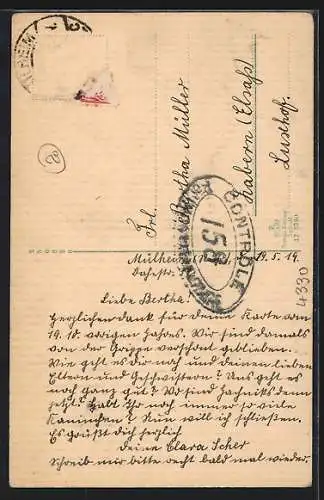 Frl.
Bertha Müller
Zabern (Elsaß)
Lushof.
CONTROLE
15
Mülheim 19.5.19.
Liebe Bertha!
Herzlichen Dank für deine Karte vom
19.10. vorigen Jahres. Wir sind damals
von der Grippe verschont geblieben.
Wie geht es dir noch und deinen lieben
Eltern und Geschwistern? Uns geht es
noch ganz gut? Wo sind denn
jetzt? habt Ihr noch immer so viele
Kaninchen? Nun will ich schließen.
Es grüßt dich herzlich
deine Clara Scher
Schreib mir bitte recht bald mal wieder.
4330